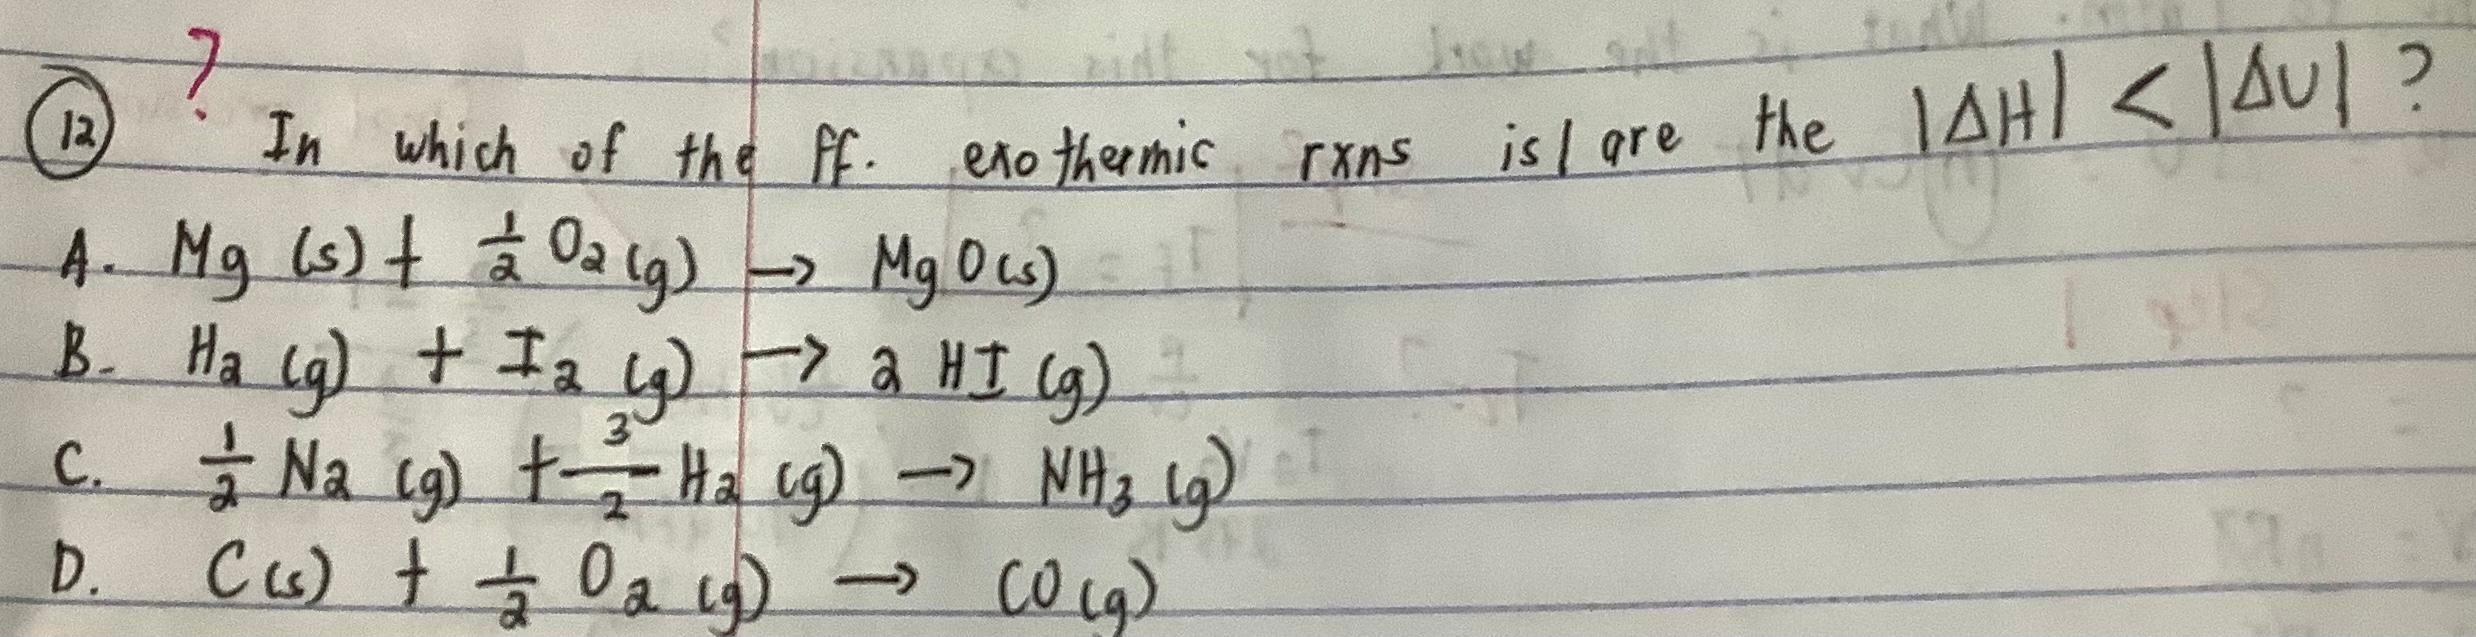 ?
12 In which of the ff. exothermic rxns is/are the |ΔH| < |ΔU| ?
A. Mg (s) + 1/2 O₂ (g) → MgO(s)
B. H₂ (g) + I₂ (g) → 2 HI (g)
C. 1/2 N₂ (g) + 3/2 H₂ (g) → NH₃ (g)
D. C(s) + 1/2 O₂ (g) → CO (g)